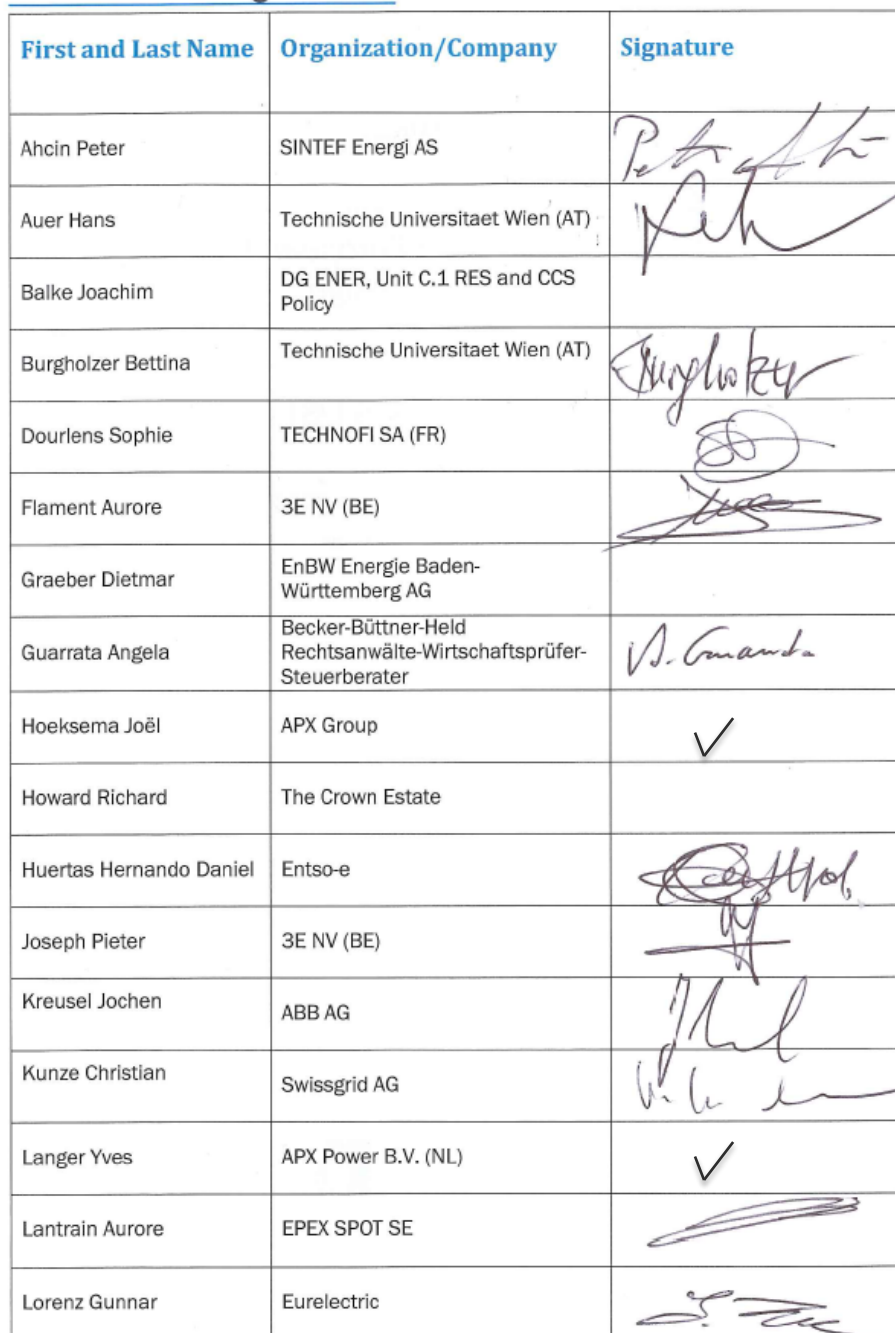 First and Last Name Organization/Company Signature
Ahcin Peter SINTEF Energi AS
Auer Hans Technische Universitaet Wien (AT)
Balke Joachim DG ENER, Unit C.1 RES and CCS
Policy
Burgholzer Bettina Technische Universitaet Wien (AT) Burgholzer
Dourlens Sophie TECHNOFI SA (FR)
Flament Aurore 3E NV (BE)
Graeber Dietmar EnBW Energie Baden-
Württemberg AG
Guarrata Angela Becker-Büttner-Held
Rechtsanwälte-Wirtschaftsprüfer-
Steuerberater
Hoeksema Joël APX Group ✓
Howard Richard The Crown Estate
Huertas Hernando Daniel Entso-e
Joseph Pieter 3E NV (BE)
Kreusel Jochen ABB AG
Kunze Christian Swissgrid AG
Langer Yves APX Power B.V. (NL) ✓
Lantrain Aurore EPEX SPOT SE
Lorenz Gunnar Eurelectric